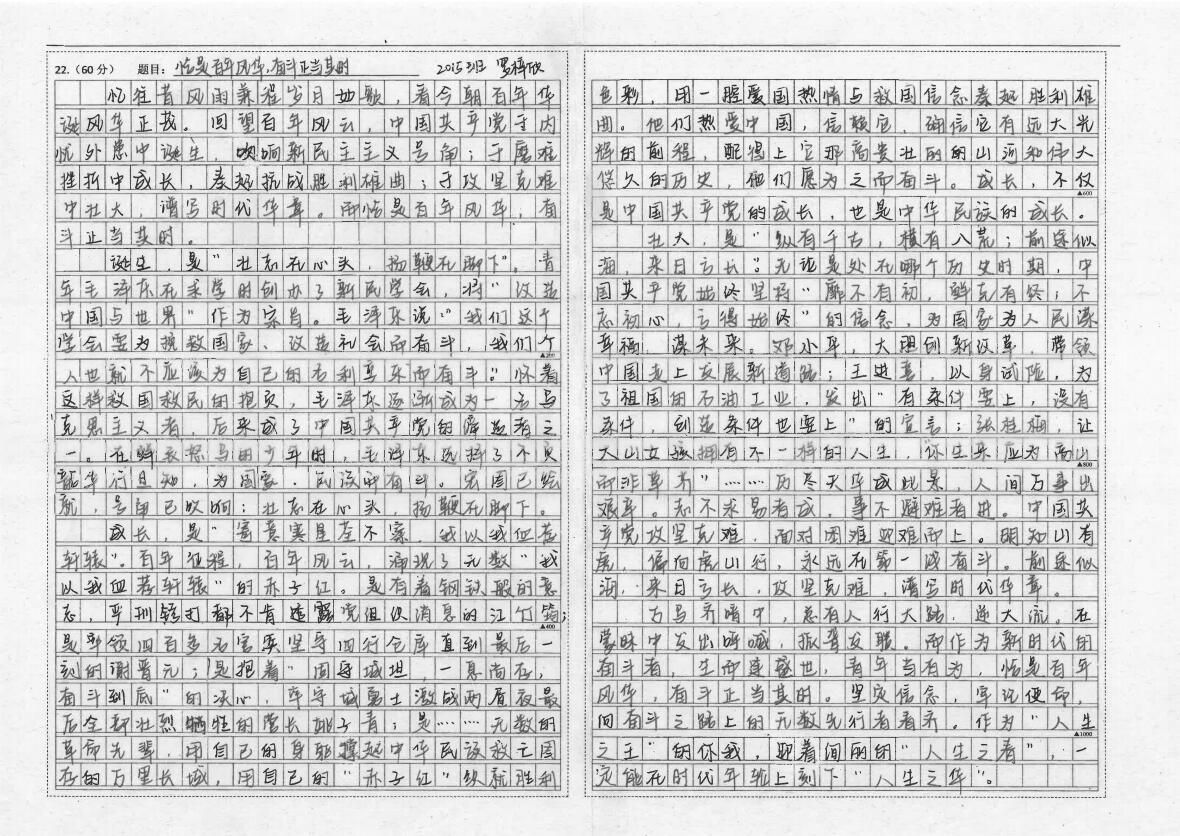 22.（60分） 题目：恰是百年风华，奋斗正当其时 2015班 罗梓欣
忆往昔风雨兼程岁月如歌，看今朝百年华
诞风华正茂。回望百年风云，中国共产党于内
忧外患中诞生，吹响新民主主义号角；于磨难
挫折中成长，奏起抗战胜利雄曲；于攻坚克难
中壮大，谱写时代华章。而恰是百年风华，奋
斗正当其时。
诞生，是“壮志在心头，扬鞭在脚下”。青
年毛泽东在求学时创办了新民学会，将“改造
中国与世界”作为宗旨。毛泽东说：“我们这个
学会要为拯救国家、改造社会而奋斗，我们个
▲200
人也就不应该为自己的名利享乐而奋斗。”怀着
这样救国救民的抱负，毛泽东逐渐成为一名马
克思主义者，后来成了中国共产党的缔造者之
一。在鲜衣怒马的少年时，毛泽东选择了不负
韶华行且知，为国家、民族而奋斗。宏图已绘
就，号角已吹响；壮志在心头，扬鞭在脚下。
成长，是“寄意寒星荃不察，我以我血荐
轩辕”。百年征程，百年风云，涌现了无数“我
以我血荐轩辕”的赤子红。是有着钢铁般的意
志，严刑铐打都不肯透露党组织消息的江竹筠；
▲400
是率领四百多名官兵坚守四行仓库直到最后一
刻的谢晋元；是抱着“固守城坦，一息尚存，
奋斗到底”的决心，率守城勇士激战两昼夜最
后全部壮烈牺牲的营长姚子青；是……无数的
革命先辈，用自己的身躯撑起中华民族救亡图
存的万里长城，用自己的“赤子红”织就胜利
色彩，用一腔爱国热情与救国信念奏起胜利雄
曲。他们热爱中国，信赖它，确信它有远大光
辉的前程，配得上它那高贵壮丽的山河和伟大
悠久的历史，他们愿为之而奋斗。成长，不仅
▲600
是中国共产党的成长，也是中华民族的成长。
壮大，是“纵有千古，横有八荒；前途似
海，来日方长”。无论是处在哪个历史时期，中
国共产党始终坚持“靡不有初，鲜克有终；不
忘初心，方得始终”的信念，为国家为人民谋
幸福，谋未来。邓小平，大胆创新改革，带领
中国走上发展新道路；王进喜，以身试险，为
了祖国的石油工业，发出“有条件要上，没有
条件，创造条件也要上”的宣言；张桂梅，让
大山女孩拥有不一样的人生，“你生来应为高山
▲800
而非草芥”……历尽天华成此景，人间万事出
艰辛。志不求易者成，事不避难者进。中国共
产党攻坚克难，面对困难迎难而上。明知山有
虎，偏向虎山行，永远在第一线奋斗。前途似
海，来日方长，攻坚克难，谱写时代华章。
万马齐喑中，总有人行大路，逆大流。在
蒙昧中发出呼喊，振聋发聩。而作为新时代的
奋斗者，生而逢盛世，青年当有为，恰是百年
风华，奋斗正当其时。坚定信念，牢记使命，
向奋斗之路上的无数先行者看齐。作为“人生
▲1000
之王”的你我，迎着间雨的“人生之春”，一
定能在时代年轮上刻下“人生之华”。